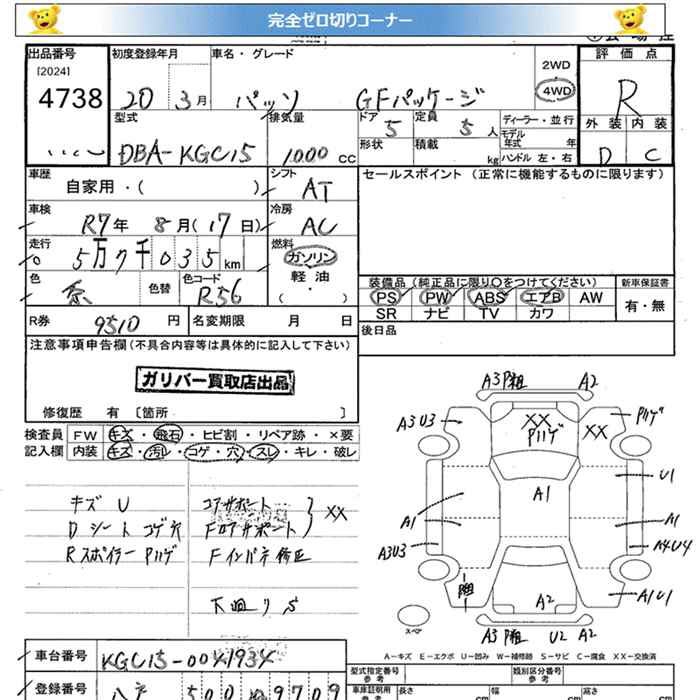 完全ゼロ切りコーナー
出品番号
[2024]
4738
初度登録年月
20 3月
車名・グレード
パッソ GFパッケージ
2WD
4WD
評価点
R
外装 内装
D C
型式
DBA-KGC15
排気量
1000 cc
ドア 5
定員 5人
形状
積載 kg
ディーラー・並行
モデル年式 年
ハンドル 左・右
車歴
自家用・( )
シフト
AT
車検
R7年 8月(17日)
冷房
AC
走行
5万7千035km
燃料
ガソリン
軽油
( ・ )
色
色替
色コード
R56
セールスポイント (正常に機能するものに限ります)
装備品(純正品に限り○をつけてください)
PS PW ABS エアB AW
SR ナビ TV カワ
新車保証書
有・無
R券
9510円
名変期限 月 日
後日品
注意事項申告欄(不具合内容等は具体的に記入して下さい)
ガリバー買取店出品
修復歴 有 〔箇所 〕
検査員 FW キズ・飛石・ヒビ割・リペア跡・×要
記入欄 内装 キズ・汚レ・コゲ・穴・スレ・キレ・破レ
キズU
Dシートコゲ穴
Rスポイラー Pハゲ
コアサポート
Fロアサポート
XX
Fインパネ修正
下廻りS
A3 P粗 A2
A3U3
XX
Pハゲ
XX
Pハゲ
U1
A1
A1
A1
A3U3
A4U4
P粗
A2
A1U1
A3 P粗 U2 A2
スペア
A-キズ E-エクボ U-凹み W-補修跡 S-サビ C-腐食 XX-交換済
車台番号
KGC15-0041934
登録番号
八戸 500 ぬ 9709
型式指定番号
参考
類別区分番号
参考
車庫証明用
参考
長さ cm
幅 cm
高さ cm